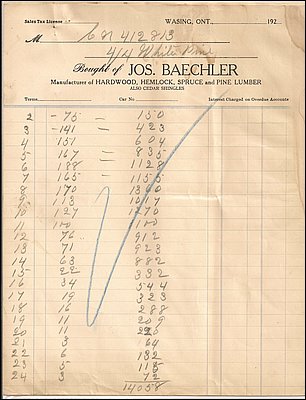 Sales Tax License WASING, ONT., 192
M 68 412813
4/4 White Pine
Bought of JOS. BAECHLER
Manufacturer of HARDWOOD, HEMLOCK, SPRUCE and PINE LUMBER
ALSO CEDAR SHINGLES
Terms Car No. Interest Charged on Overdue Accounts
2 - 75 = 150
3 - 141 = 423
4 151 604
5 167 = 835
6 188 = 1128
7 165 = 1155
8 170 1360
9 113 1017
10 127 1270
11 100 1100
12 76 912
13 71 923
14 63 882
15 22 332
16 34 544
17 19 323
18 16 288
19 11 209
20 11 220
21 3 64
22 6 132
23 5 115
24 3 72
14058